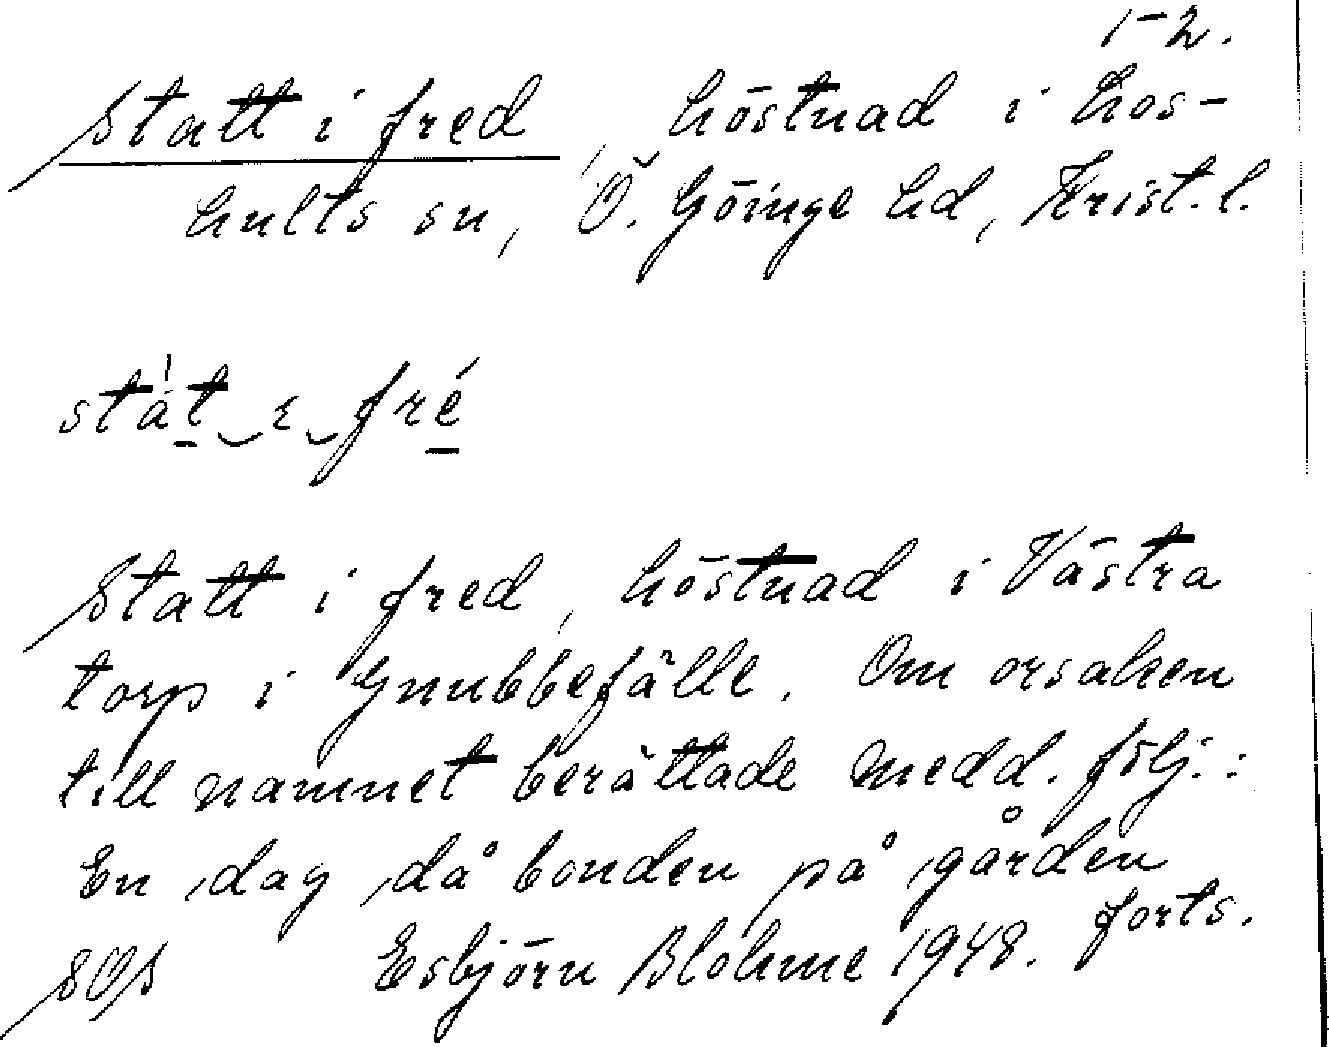 1-2.
Statt i fred, höstnad i Hos-
hults sn, Ö. Göinge hd, Krist. l.
stát ɪ fré
Statt i fred, höstnad i Västra
torp i Gnubbefälle. Om orsaken
till namnet berättade medd. följ.:
En dag då bonden på gården
forts.
SOS Esbjörn Blohme 1948.